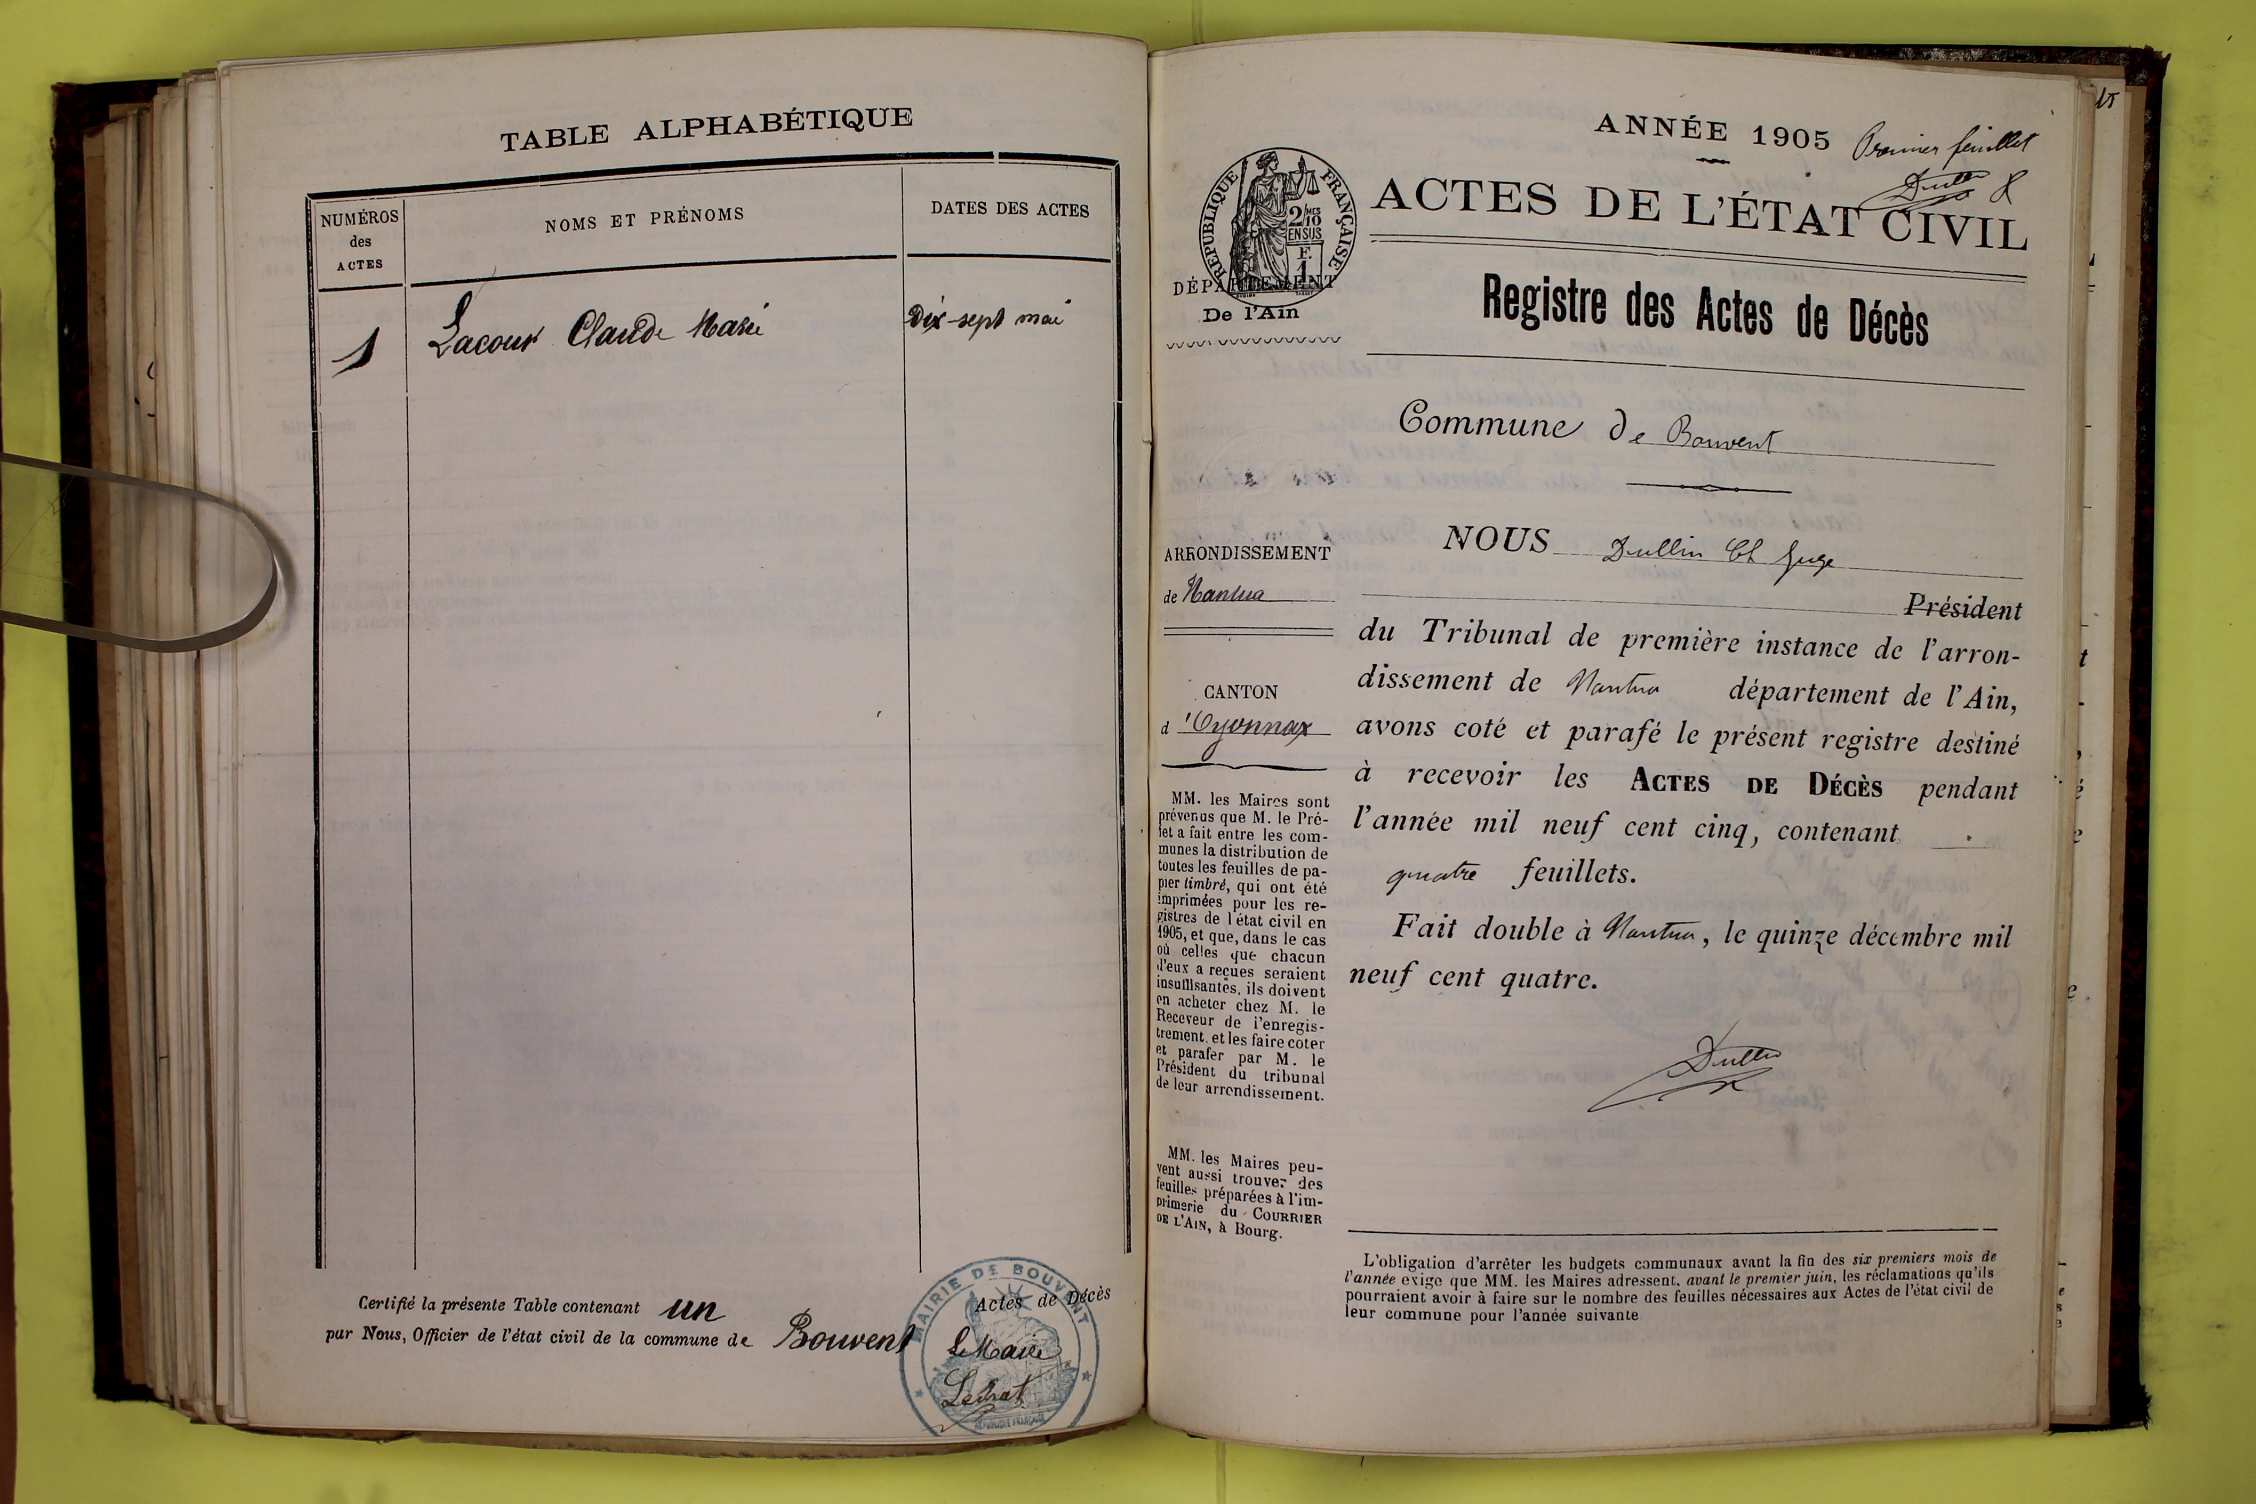 TABLE ALPHABÉTIQUE
NUMÉROS
des
ACTES
NOMS ET PRÉNOMS
DATES DES ACTES
1
Lacour Claude Marie
Dix-sept mai
Certifié la présente Table contenant un Actes de Décès
par Nous, Officier de l'état civil de la commune de Bouvent
Le Maire
MAIRIE DE BOUVENT
ANNÉE 1905
Premier feuillet
Dullin
RÉPUBLIQUE FRANÇAISE
2/10MES
EN SUS
F.
1
DÉPARTEMENT
De l'Ain
ACTES DE L'ÉTAT CIVIL
Registre des Actes de Décès
Commune de Bouvent
ARRONDISSEMENT
de Nantua
CANTON
d'Oyonnax
MM. les Maires sont
prévenus que M. le Pré-
fet a fait entre les com-
munes la distribution de
toutes les feuilles de pa-
pier timbré, qui ont été
imprimées pour les re-
gistres de l'état civil en
1905, et que, dans le cas
où celles que chacun
d'eux a reçues seraient
insuffisantes, ils doivent
en acheter chez M. le
Receveur de l'enregis-
trement, et les faire coter
et parafer par M. le
Président du tribunal
de leur arrondissement.
MM. les Maires peu-
vent aussi trouver des
feuilles préparées à l'im-
primerie du COURRIER
DE L'AIN, à Bourg.
NOUS Dullin Ch Juge
Président
du Tribunal de première instance de l'arron-
dissement de Nantua département de l'Ain,
avons coté et parafé le présent registre destiné
à recevoir les ACTES DE DÉCÈS pendant
l'année mil neuf cent cinq, contenant
quatre feuillets.
Fait double à Nantua, le quinze décembre mil
neuf cent quatre.
Dullin
L'obligation d'arrêter les budgets communaux avant la fin des six premiers mois de
l'année exige que MM. les Maires adressent, avant le premier juin, les réclamations qu'ils
pourraient avoir à faire sur le nombre des feuilles nécessaires aux Actes de l'état civil de
leur commune pour l'année suivante